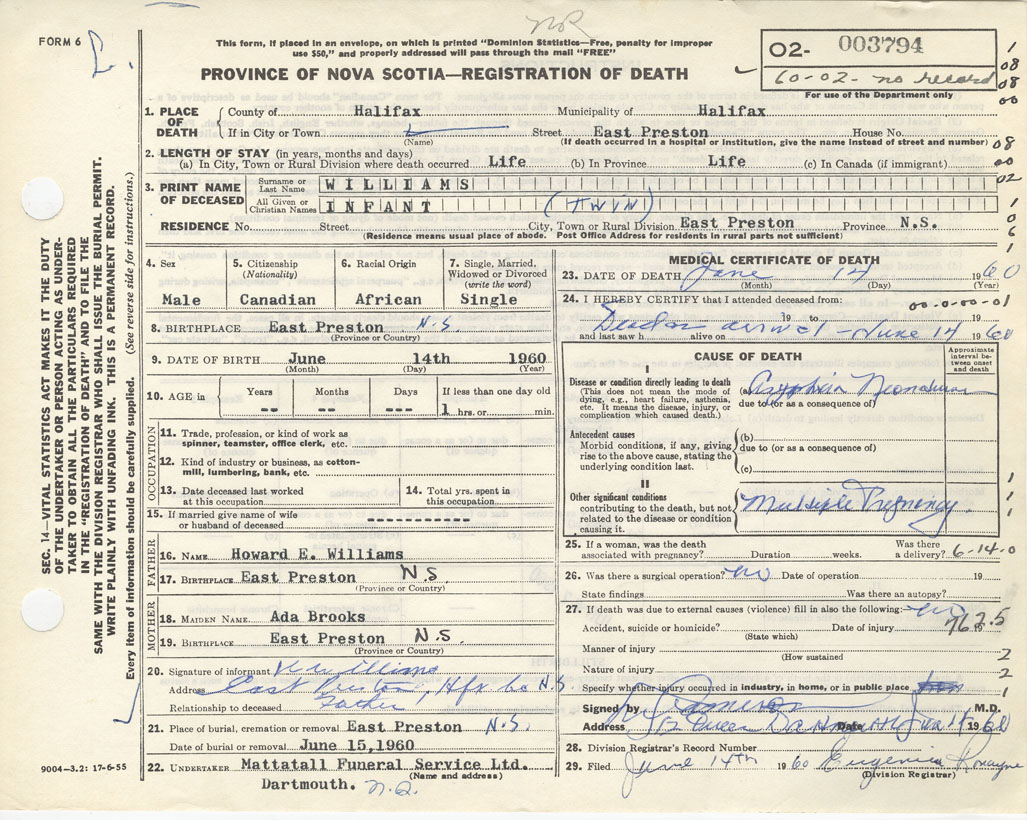 FORM 6
NR
This form, if placed in an envelope, on which is printed "Dominion Statistics—Free, penalty for improper
use $50," and properly addressed will pass through the mail "FREE"
PROVINCE OF NOVA SCOTIA—REGISTRATION OF DEATH
02- 003794
60-02- no record
For use of the Department only
1
08
08
00
08
00
02
1
0
6
1
SEC. 14—VITAL STATISTICS ACT MAKES IT THE DUTY
OF THE UNDERTAKER OR PERSON ACTING AS UNDER-
TAKER TO OBTAIN ALL THE PARTICULARS REQUIRED
IN THE "REGISTRATION OF DEATH" AND TO FILE THE
SAME WITH THE DIVISION REGISTRAR WHO SHALL ISSUE THE BURIAL PERMIT.
WRITE PLAINLY WITH UNFADING INK. THIS IS A PERMANENT RECORD.
Every item of information should be carefully supplied. (See reverse side for instructions.)
1. PLACE OF DEATH
County of Halifax Municipality of Halifax
If in City or Town Street East Preston House No.
(Name) (If death occurred in a hospital or institution, give the name instead of street and number)
2. LENGTH OF STAY (in years, months and days)
(a) In City, Town or Rural Division where death occurred Life (b) In Province Life (c) In Canada (if immigrant)
3. PRINT NAME OF DECEASED
Surname or Last Name WILLIAMS
All Given or Christian Names INFANT (TWIN)
RESIDENCE No. Street City, Town or Rural Division East Preston Province N.S.
(Residence means usual place of abode. Post Office Address for residents in rural parts not sufficient)
4. Sex
Male
5. Citizenship
(Nationality)
Canadian
6. Racial Origin
African
7. Single, Married,
Widowed or Divorced
(write the word)
Single
8. BIRTHPLACE East Preston N.S.
(Province or Country)
9. DATE OF BIRTH June 14th 1960
(Month) (Day) (Year)
10. AGE in
Years Months Days If less than one day old
-- -- --- 1 hrs. or min.
OCCUPATION
11. Trade, profession, or kind of work as
spinner, teamster, office clerk, etc.
12. Kind of industry or business, as cotton-
mill, lumbering, bank, etc.
13. Date deceased last worked
at this occupation
14. Total yrs. spent in
this occupation
15. If married give name of wife
or husband of deceased ------------
FATHER
16. NAME Howard E. Williams
17. BIRTHPLACE East Preston N.S
(Province or Country)
MOTHER
18. MAIDEN NAME Ada Brooks
19. BIRTHPLACE East Preston N.S
(Province or Country)
20. Signature of informant Williams
Address East Preston, Hfx Co N.S.
Relationship to deceased Father
21. Place of burial, cremation or removal East Preston N.S.
Date of burial or removal June 15,1960
22. UNDERTAKER Mattatall Funeral Service Ltd.
(Name and address)
Dartmouth. N.S.
9004-3.2: 17-6-55
MEDICAL CERTIFICATE OF DEATH
23. DATE OF DEATH June 14 1960
(Month) (Day) (Year)
24. I HEREBY CERTIFY that I attended deceased from: 00-0-00-01
19 to 19
and last saw h alive on June 14 1960
CAUSE OF DEATH
Approximate
interval be-
tween onset
and death
I
Disease or condition directly leading to death
(This does not mean the mode of
dying, e.g., heart failure, asthenia,
etc. It means the disease, injury, or
complication which caused death.)
(a) Asphyxia Neonatorum
due to (or as a consequence of)
Antecedent causes
Morbid conditions, if any, giving
rise to the above cause, stating the
underlying condition last.
(b)
due to (or as a consequence of)
(c)
II
Other significant conditions
contributing to the death, but not
related to the disease or condition
causing it.
Multiple Pregnancy.
1
1
1
25. If a woman, was the death
associated with pregnancy? Duration weeks. Was there
a delivery? 6-14-0
26. Was there a surgical operation? no Date of operation 19
State findings Was there an autopsy?
27. If death was due to external causes (violence) fill in also the following: no
Accident, suicide or homicide? Date of injury 19
762.5
(State which)
Manner of injury 2
(How sustained
Nature of injury 2
Specify whether injury occurred in industry, in home, or in public place 1
Signed by Cameron M.D.
Address Queen Date 1960
28. Division Registrar's Record Number
29. Filed June 14th 1960 Eugenia
(Division Registrar)